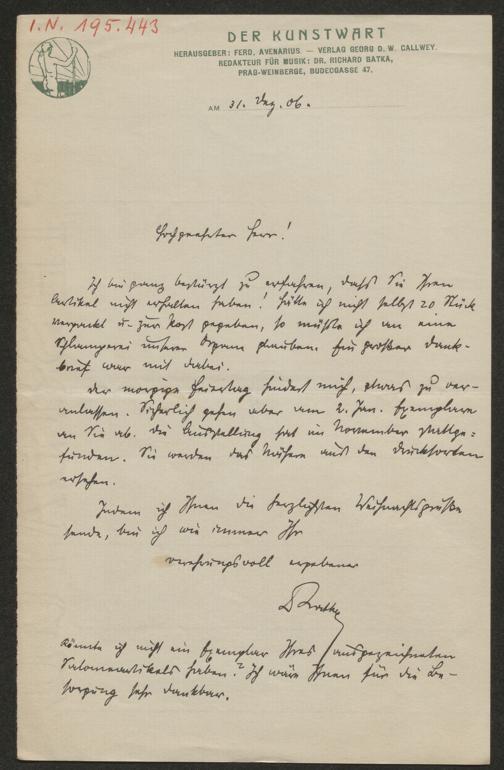 I.N. 195.443
DER KUNSTWART
HERAUSGEBER: FERD. AVENARIUS. — VERLAG GEORG D. W. CALLWEY.
REDAKTEUR FÜR MUSIK: DR. RICHARD BATKA,
PRAG-WEINBERGE, BUDECGASSE 47.
AM 31. Dez. 06.
Hochgeehrter Herr!
Ich bin ganz bestürzt zu erfahren, dass Sie Ihren
Artikel nicht erhalten haben! Hätte ich nicht selbst 20 Stück
verpackt u. zur Post gegeben, so müsste ich an eine
Schlamperei unserer glauben. Ein großer Dank-
brief war mit dabei.
Der morgige Feiertag hindert mich, etwas zu ver-
anlassen. Sicherlich gehen aber am 2. Jan. Exemplare
an Sie ab. Die Ausstellung hat im November stattge-
funden. Sie werden das Nähere aus den Drucksorten
ersehen.
Indem ich Ihnen die herzlichsten Weihnachtsgrüße
sende, bin ich wie immer Ihr
verehrungsvoll ergebener
DRBatka
Könnte ich nicht ein Exemplar Ihres ausgezeichneten
Salomeartikels haben? Ich wäre Ihnen für die Be-
sorgung sehr dankbar.